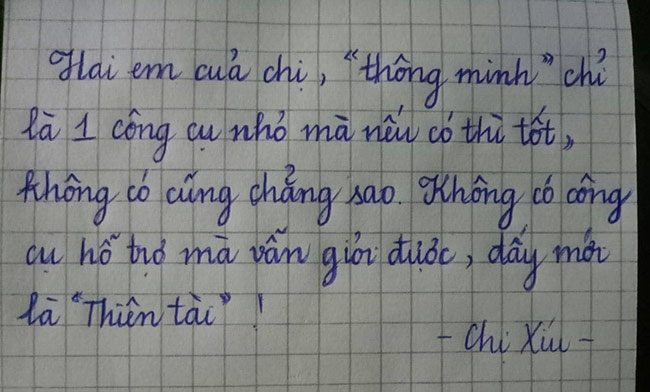 Hai em cuả chị, "thông minh" chỉ
là 1 công cụ nhỏ mà nếu có thì tốt,
không có cũng chẳng sao. Không có công
cụ hỗ trợ mà vẫn giỏi được, đấy mới
là "Thiên tài" !
- Chị Xíu -